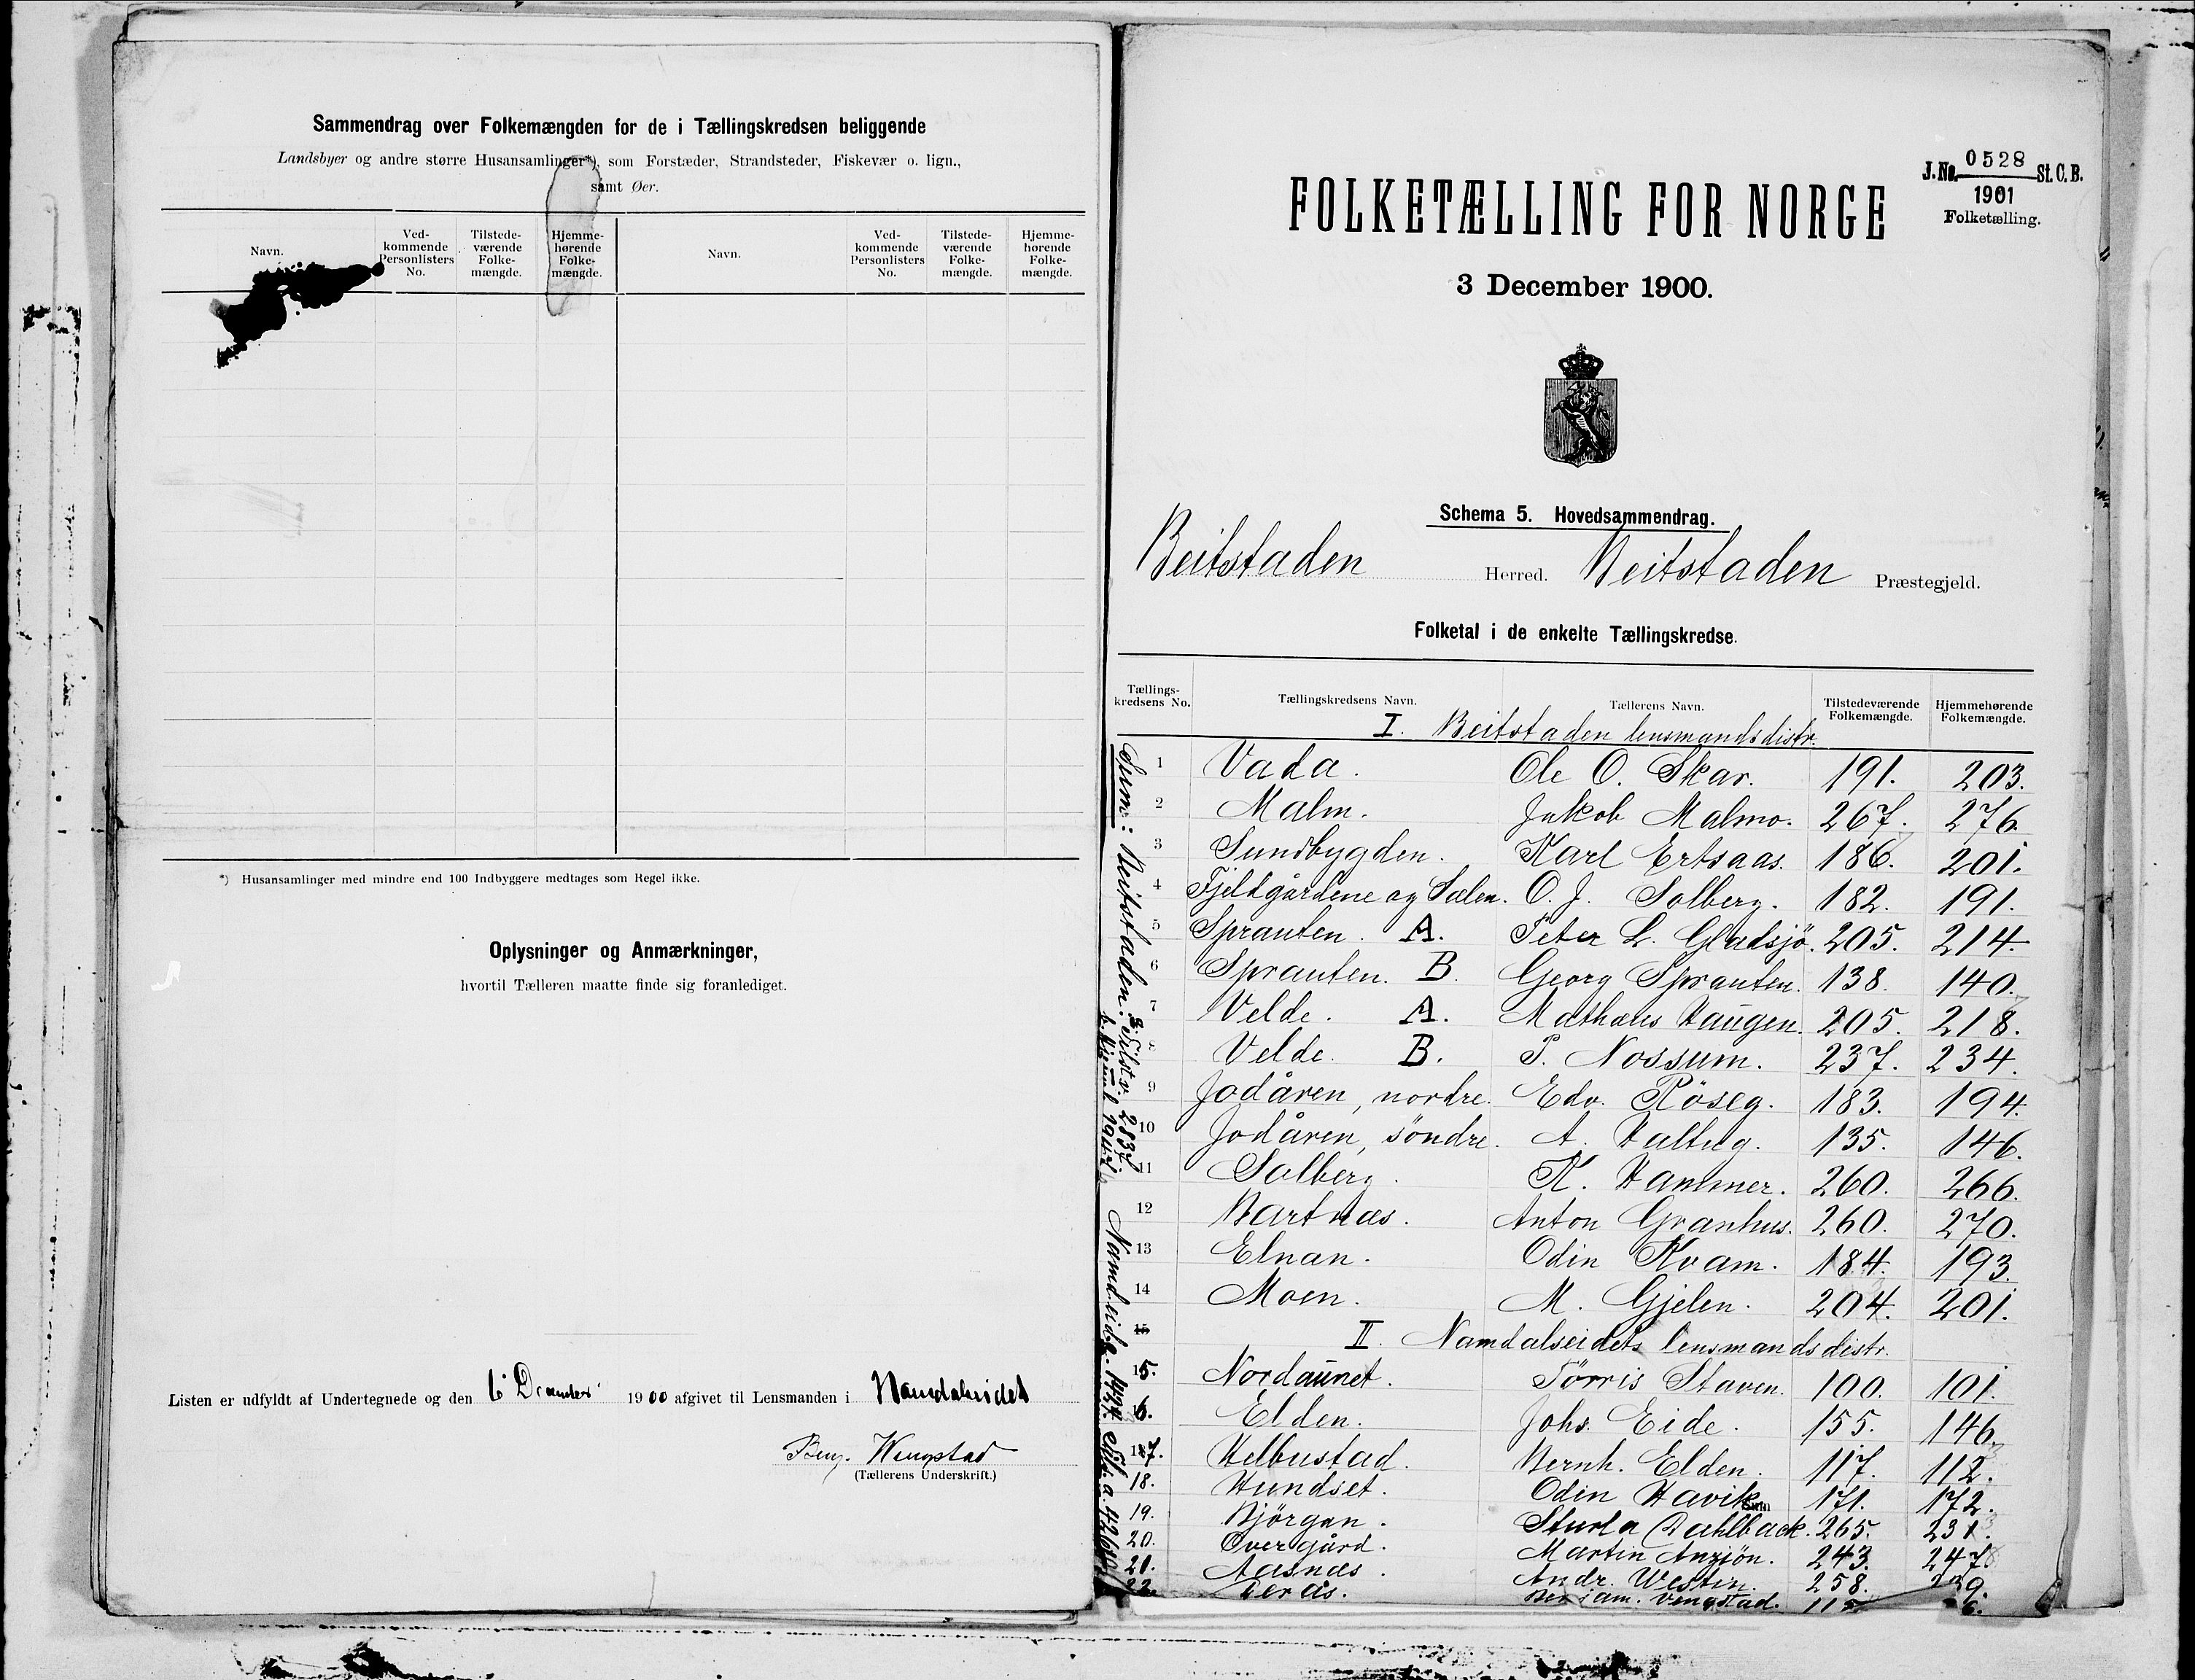 Sammendrag over Folkemængden for de i Tællingskredsen beliggende
Landsbyer og andre større Husansamlinger*), som Forstæder, Strandsteder, Fiskevær o. lign.,
samt Øer.
Navn. Ved-kommende Personlisters No. Tilstede-værende Folke-mængde. Hjemme-hørende Folke-mængde. Navn. Ved-kommende Personlisters No. Tilstede-værende Folke-mængde. Hjemme-hørende Folke-mængde.
*) Husansamlinger med mindre end 100 Indbyggere medtages som Regel ikke.
Oplysninger og Anmærkninger,
hvortil Tælleren maatte finde sig foranlediget.
Listen er udfyldt af Undertegnede og den 6 December 1900 afgivet til Lensmanden i Namdalseidet
Benj. Wengstad
(Tællerens Underskrift.)
J. No. 0528 St. C. B.
1901
Folketælling.
FOLKETÆLLING FOR NORGE
3 December 1900.
Schema 5. Hovedsammendrag.
Beitstaden Herred. Beitstaden Præstegjeld.
Folketal i de enkelte Tællingskredse.
Tællings-kredsens No. Tællingskredsens Navn. Tællerens Navn. Tilstedeværende Folkemængde. Hjemmehørende Folkemængde.
I. Beitstaden lensmandsdistr.
1 Vada. Ole O. Skar. 191. 203.
2 Malm. Jakob Malmo. 267. 276.
3 Sundbygden. Karl Ertsaas. 186. 201.
4 Fjeldgårdene og Sælen. O. J. Solberg. 182. 191.
5 Sprauten. A. Peter L. Gladsjö. 205. 214.
6 Sprauten. B. Georg Sprauten. 138. 140.
7 Velde. A. Mathæus Haugen. 205. 218.
8 Velde. B. P. Nossum. 237. 234.
9 Jodåren, nordre. Edv. Röseg. 183. 194.
10 Jodåren, söndre. A. Haltug. 135. 146.
11 Solberg. K. Hammer. 260. 266.
12 Bartnæs. Anton Granhus. 260. 270.
13 Elnan. Odin Kvam. 184. 193.
14 Moen. M. Gjelen. 204. 201.
15 II. Namdalseidets lensmandsdistr.
15. Nordaunet. Tørris Staven. 100. 101.
16. Elden. Johs. Eide. 155. 146.
17. Helbustad. Bernh. Elden. 117. 112.
18. Hundset. Odin Havik 171. 172.
19. Bjørgan. Sturla Dahlback. 265. 231.
20. Overgård. Martin Anzjön. 243. 247
21. Aasnæs. Andr. Westin. 258. 239.
22. Derås. Benjam. Vengstad.
Sum: Beitstaden: a. Tilst.v. 2837